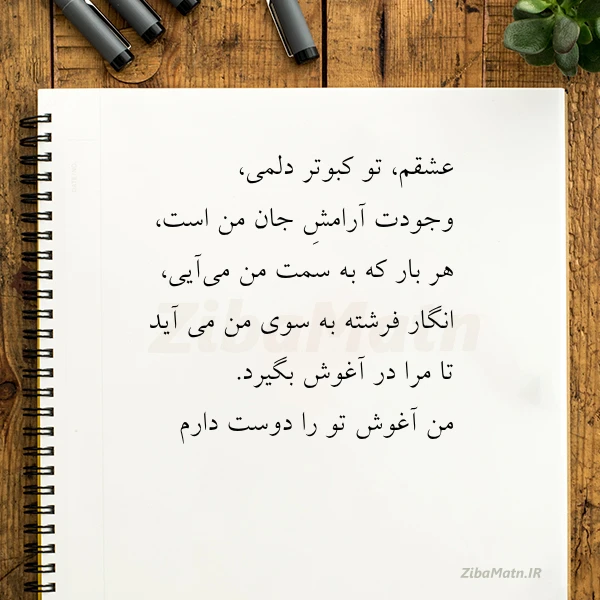 عشقم، تو کبوتر دلمی،
وجودت آرامشِ جان من است،
هر بار که به سمت من می‌آیی،
انگار فرشته به سوی من می آید
تا مرا در آغوش بگیرد.
من آغوش تو را دوست دارم
ZibaMatn
ZibaMatn.IR